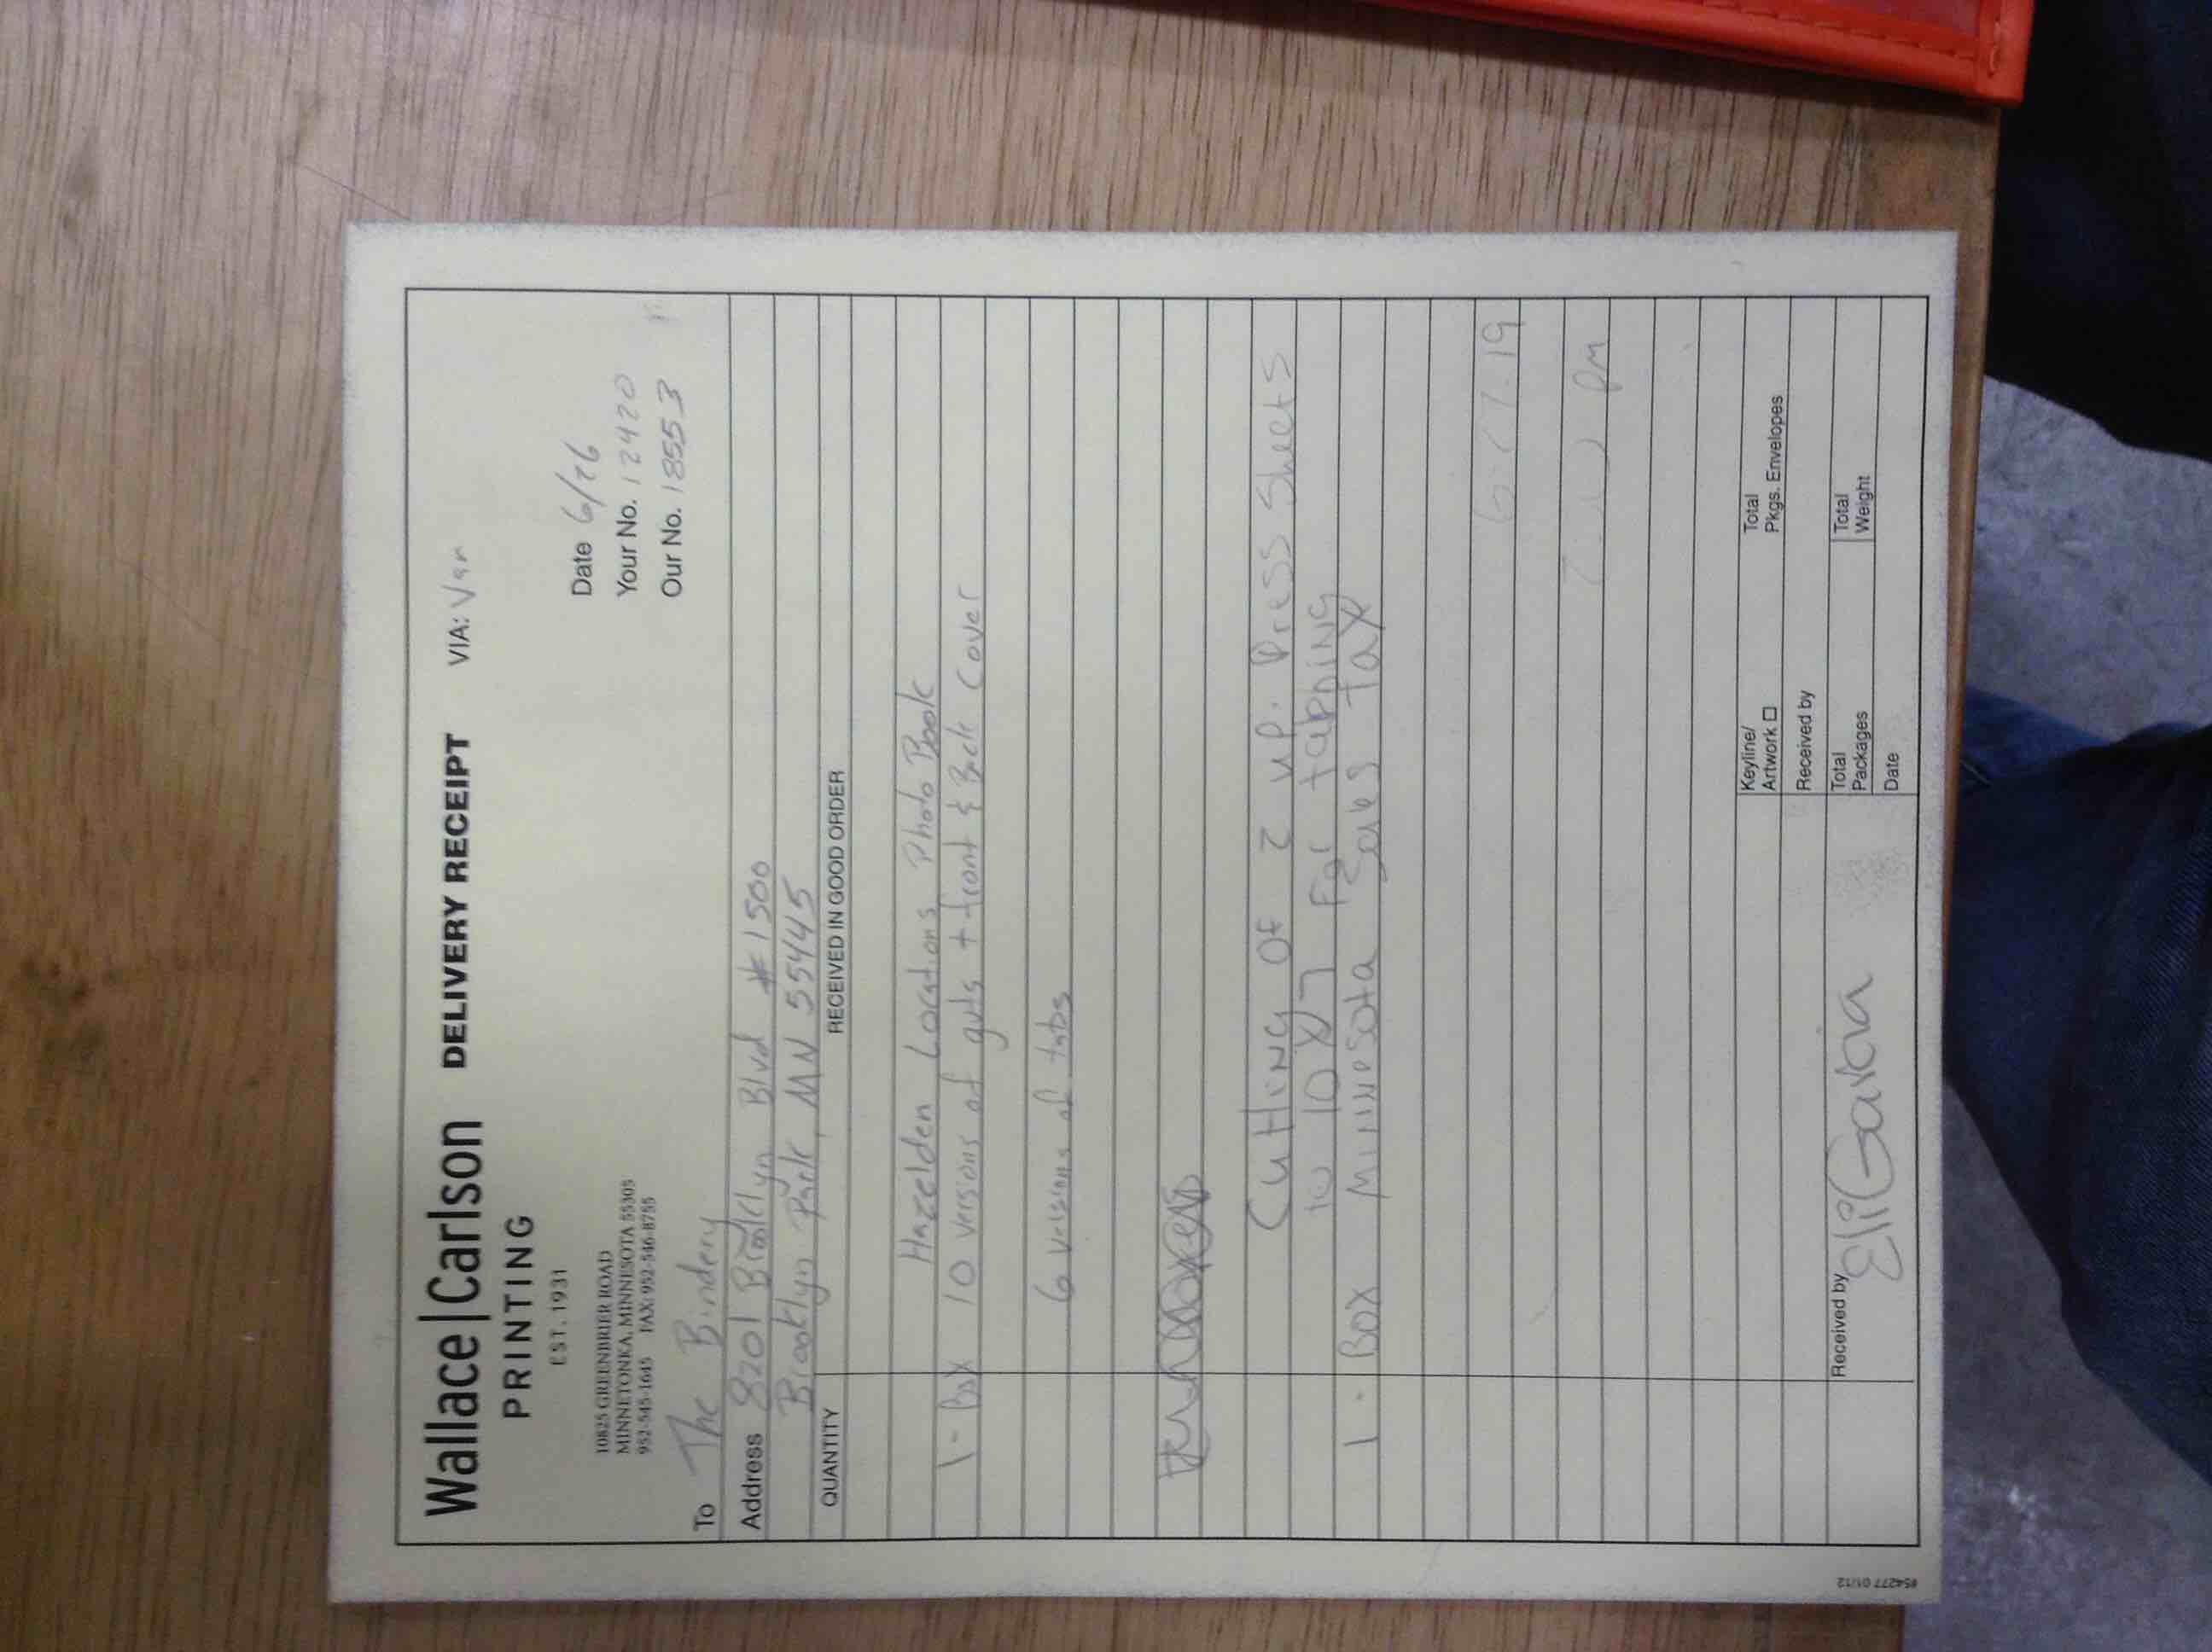 Wallace|Carlson DELIVERY RECEIPT VIA: Van
PRINTING
EST. 1931
Date 6/26
10825 GREENBRIER ROAD
MINNETONKA, MINNESOTA 55305
952-545-1645 FAX: 952-546-8755
Your No. 12420
Our No. 18553
To The Bindery
Address 8201 Brooklyn Blvd #1500
Brooklyn Park, MN 55445
QUANTITY RECEIVED IN GOOD ORDER
Hazelden Locations Photo Book
1 - Box 10 versions of guts + front & Back Cover
6 versions of tabs
Cutting OF 2 up. Press Sheets
to 10x7 For tabbing
1 - Box Minnesota Sales Tax
19
pm
Keyline/
Artwork
Total
Pkgs. Envelopes
Received by
Received by Eli Garcia
Total
Packages
Total
Weight
Date
#54277 01/12